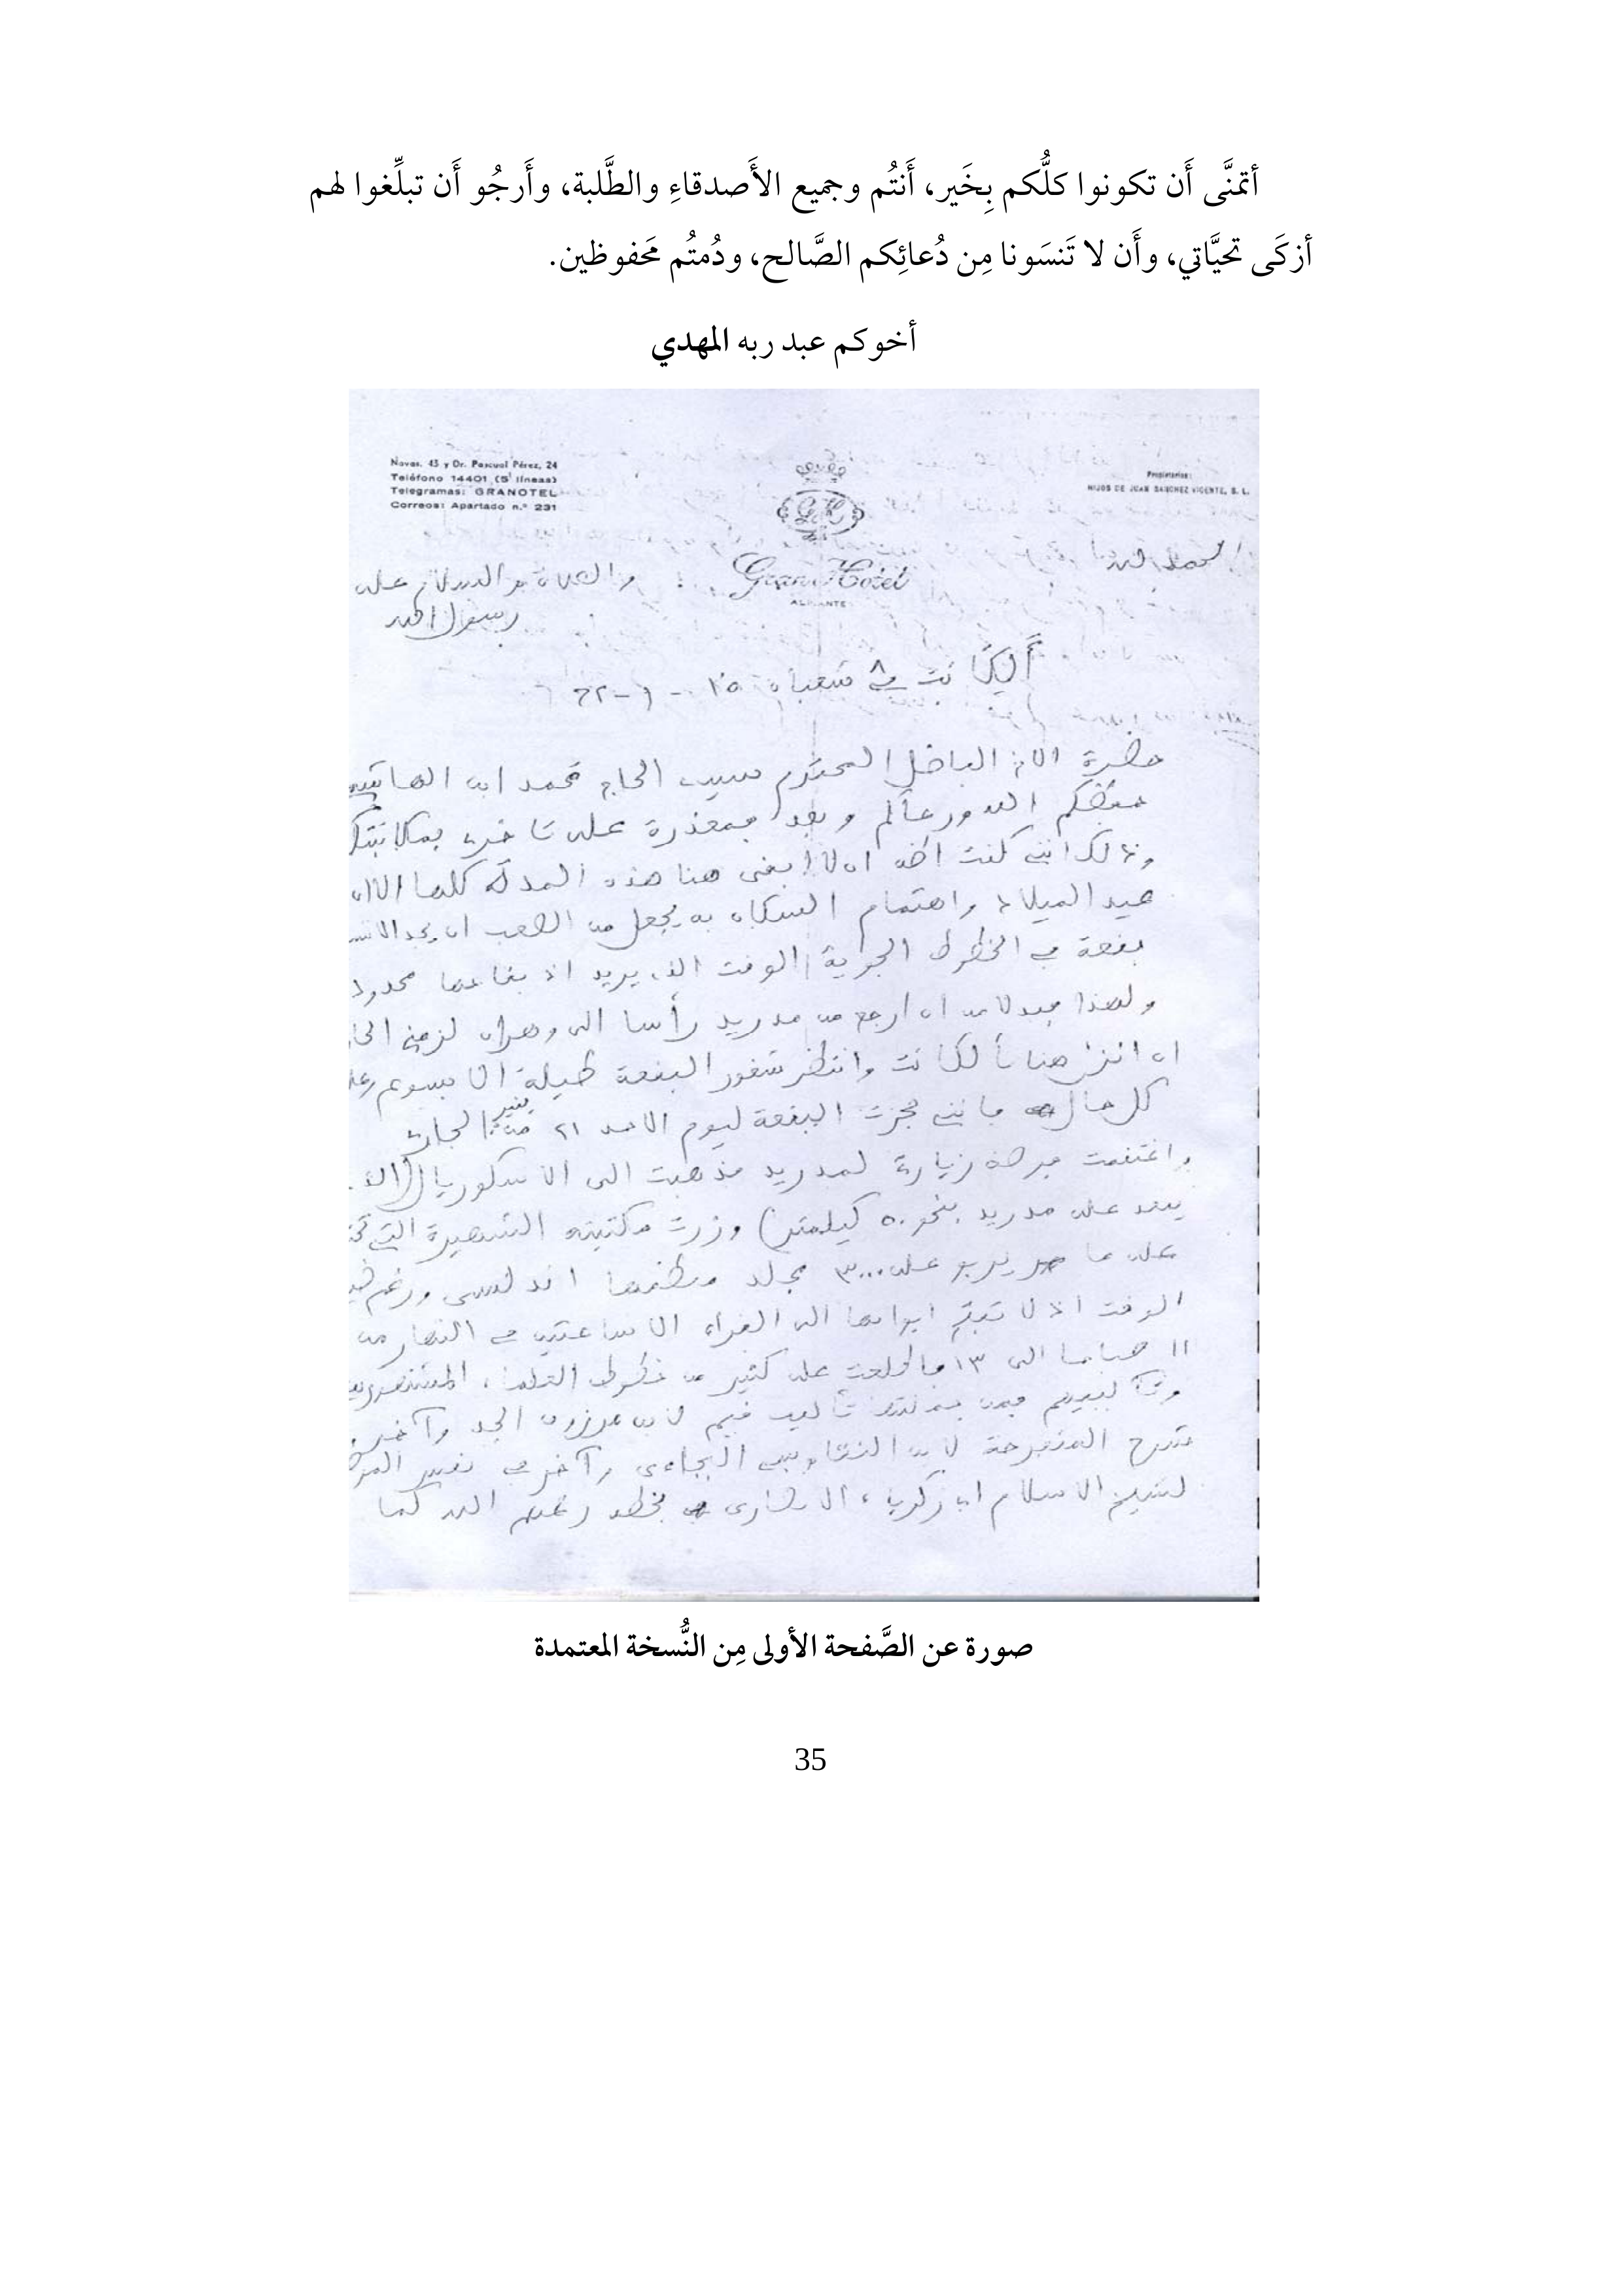 أتمنَّى أَن تكونوا كلُّكم بِخَير، أَنتُم وجميع الأَصدقاءِ والطَّلبة، وأَرجُو أَن تبلِّغوا لهم
أزكَى تحيَّاتي، وأَن لا تَنسَونا مِن دُعائِكم الصَّالح، ودُمتُم مَحفوظين.
أخوكم عبد ربه المهدي
Navas, 43 y Dr. Pascual Pérez, 24
Teléfono 14401 (5 líneas)
Telegramas: GRANOTEL
Correos: Apartado n.º 231
Propietarios:
HIJOS DE JUAN SANCHEZ VICENTE, S. L.
Gran Hotel
ALICANTE
الحمد لله
والصلاة والسلام على
رسول الله
ألكانت في شعبان
حضرة الاخ الفاضل المحترم سيدي الحاج محمد ابن
حفظكم الله ورعاكم وبعد فمعذرة على تاخري بمكاتبتكم
وذلك انني كنت اظن ان لا ابقى هنا هذه المدة كلها الا ان
عيد الميلاد واهتمام السكان به يجعل من الصعب ان يجد الانسان
بقعة في الخطوط الجوية الوقت الذي يريد اذ بقاعها محدودة
ولهذا فبدلا من ان ارجع من مدريد رأسا الى وهران لزمني الحال
ان انزل هنا بألكانت وانتظر شغور البقعة طيلة الاسبوع وعلى
كل حال فانني حجزت البقعة ليوم الاحد ٢١ من ينير الجاري
واغتنمت فرصة زيارة لمدريد فذهبت الى الاسكوريال (الذي
يبعد على مدريد بنحو ٥٠ كيلمتر) وزرت مكتبته الشهيرة التي
على ما يربو على ٣٠٠٠ مجلد معظمها اندلسي ورغم ضيق
الوقت اذ لا تفتح ابوابها الى القراء الا ساعتين في النهار من
١١ صباحا الى ١٣ فاطلعت على كثير من خطوط العلماء
وتآليفهم فمن بينها تأليف قيم لابن مرزوق الجد وآخر
شرح المنفرجة لابن النقاوسي البجاءى وآخر في تفسير
لشيخ الاسلام ابي زكرياء الانصارى بخطه رحمهم الله كما
صورة عن الصَّفحة الأولى مِن النُّسخة المعتمدة
35